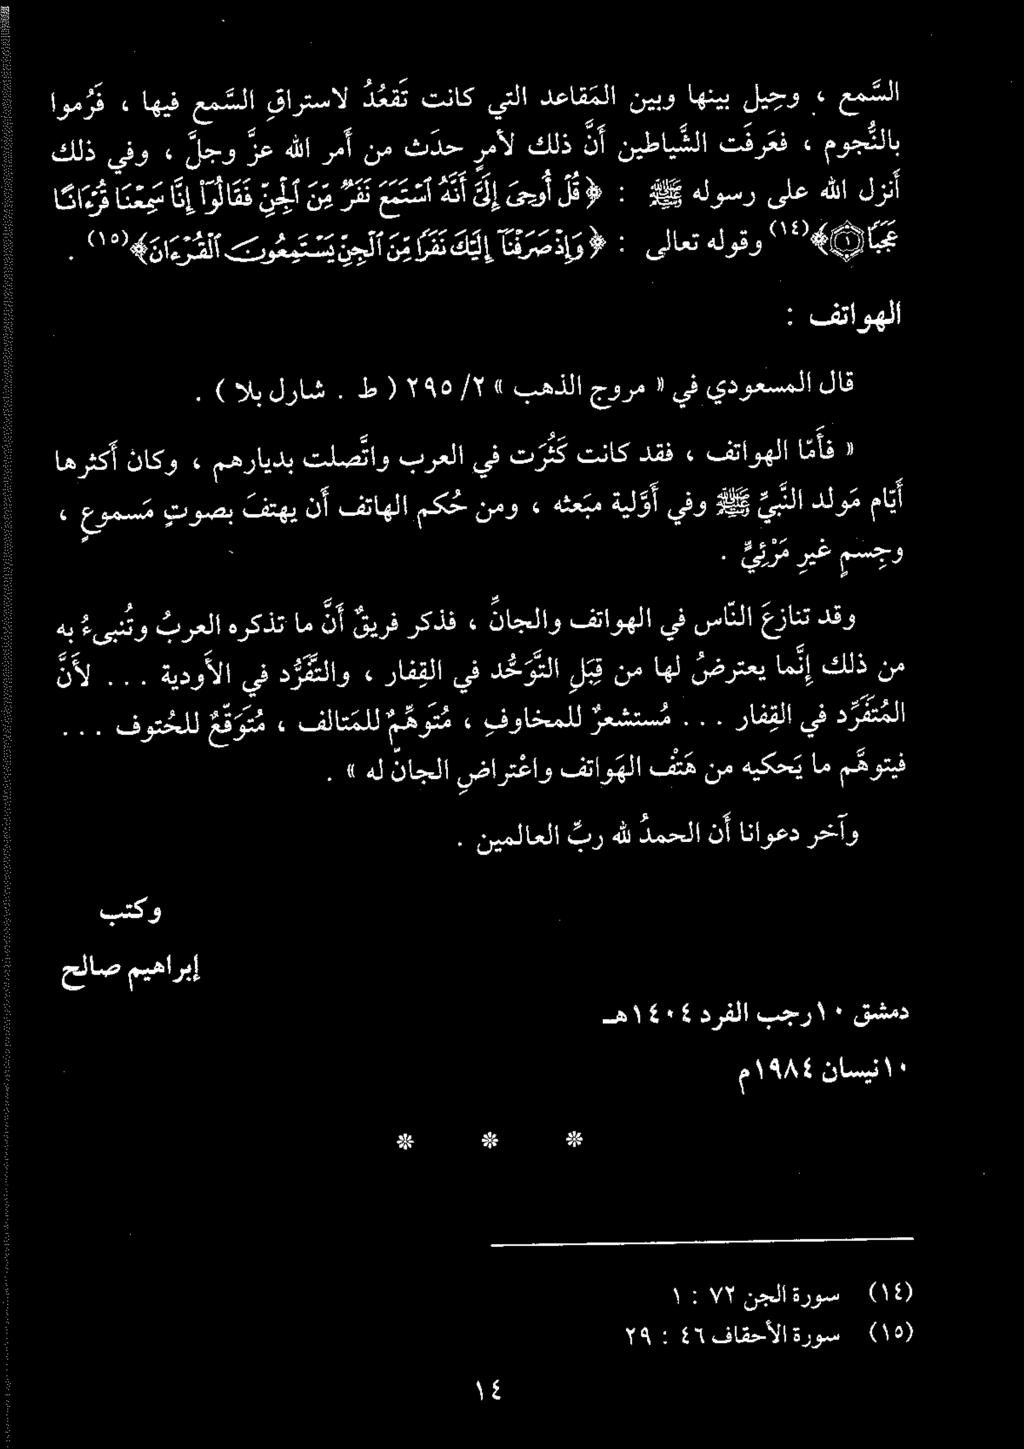 السَّمع ، وحِيل بينها وبين المَقاعد التي كانت تَقعُدُ لاستراقِ السَّمع فيها ، فَرُموا
بالنُّجوم ، فعَرفَت الشَّياطين أَنَّ ذلك لأمرٍ حدَث من أَمر الله عزَّ وجلَّ ، وفي ذلك
أَنزل الله على رسوله ﷺ : ﴿ قُلْ أُوحِيَ إِلَيَّ أَنَّهُ ٱسْتَمَعَ نَفَرٌ مِّنَ ٱلْجِنِّ فَقَالُوٓا۟ إِنَّا سَمِعْنَا قُرْءَانًا
عَجَبًا ۝١﴾(١٤) وقوله تعالى : ﴿ وَإِذْ صَرَفْنَآ إِلَيْكَ نَفَرًا مِّنَ ٱلْجِنِّ يَسْتَمِعُونَ ٱلْقُرْءَانَ﴾(١٥) .
الهواتف :
قال المسعودي في « مروج الذهب » ٢/ ٢٩٥ ( ط . شارل بلا ) .
« فأَمّا الهواتف ، فقد كانت كَثُرَت في العرب واتَّصلت بديارهم ، وكان أَكثرها
أَيّام مَولد النَّبيِّ ﷺ وفي أَوَّلية مَبعثه ، ومن حُكم الهاتف أَن يهتفَ بصوتٍ مَسموعٍ ،
وجِسمٍ غيرِ مَرْئِيٍّ .
وقد تنازعَ النّاس في الهواتف والجانِّ ، فذكر فريقٌ أَنَّ ما تذكره العربُ وتُنبىءُ به
من ذلك إنَّما يعترضُ لها من قِبَلِ التَّوَحُّد في القِفار ، والتَّفَرُّد في الأَودية ... لأَنَّ
المُتَفَرِّد في القِفار ... مُستشعرٌ للمخاوفِ ، مُتَوهِّمٌ للمَتالف ، مُتَوَقِّعٌ للحُتوف ...
فيتوهَّم ما يَحكيه من هَتْفِ الهَواتف واعْتراضِ الجانّ له » .
وآخر دعوانا أَن الحمدُ لله ربِّ العالمين .
وكتب
إبراهيم صالح
دمشق ١٠ رجب الفرد ١٤٠٤هـ
١٠ نيسان ١٩٨٤م
* * *
(١٤) سورة الجن ٧٢ : ١
(١٥) سورة الأحقاف ٤٦ : ٢٩
١٤